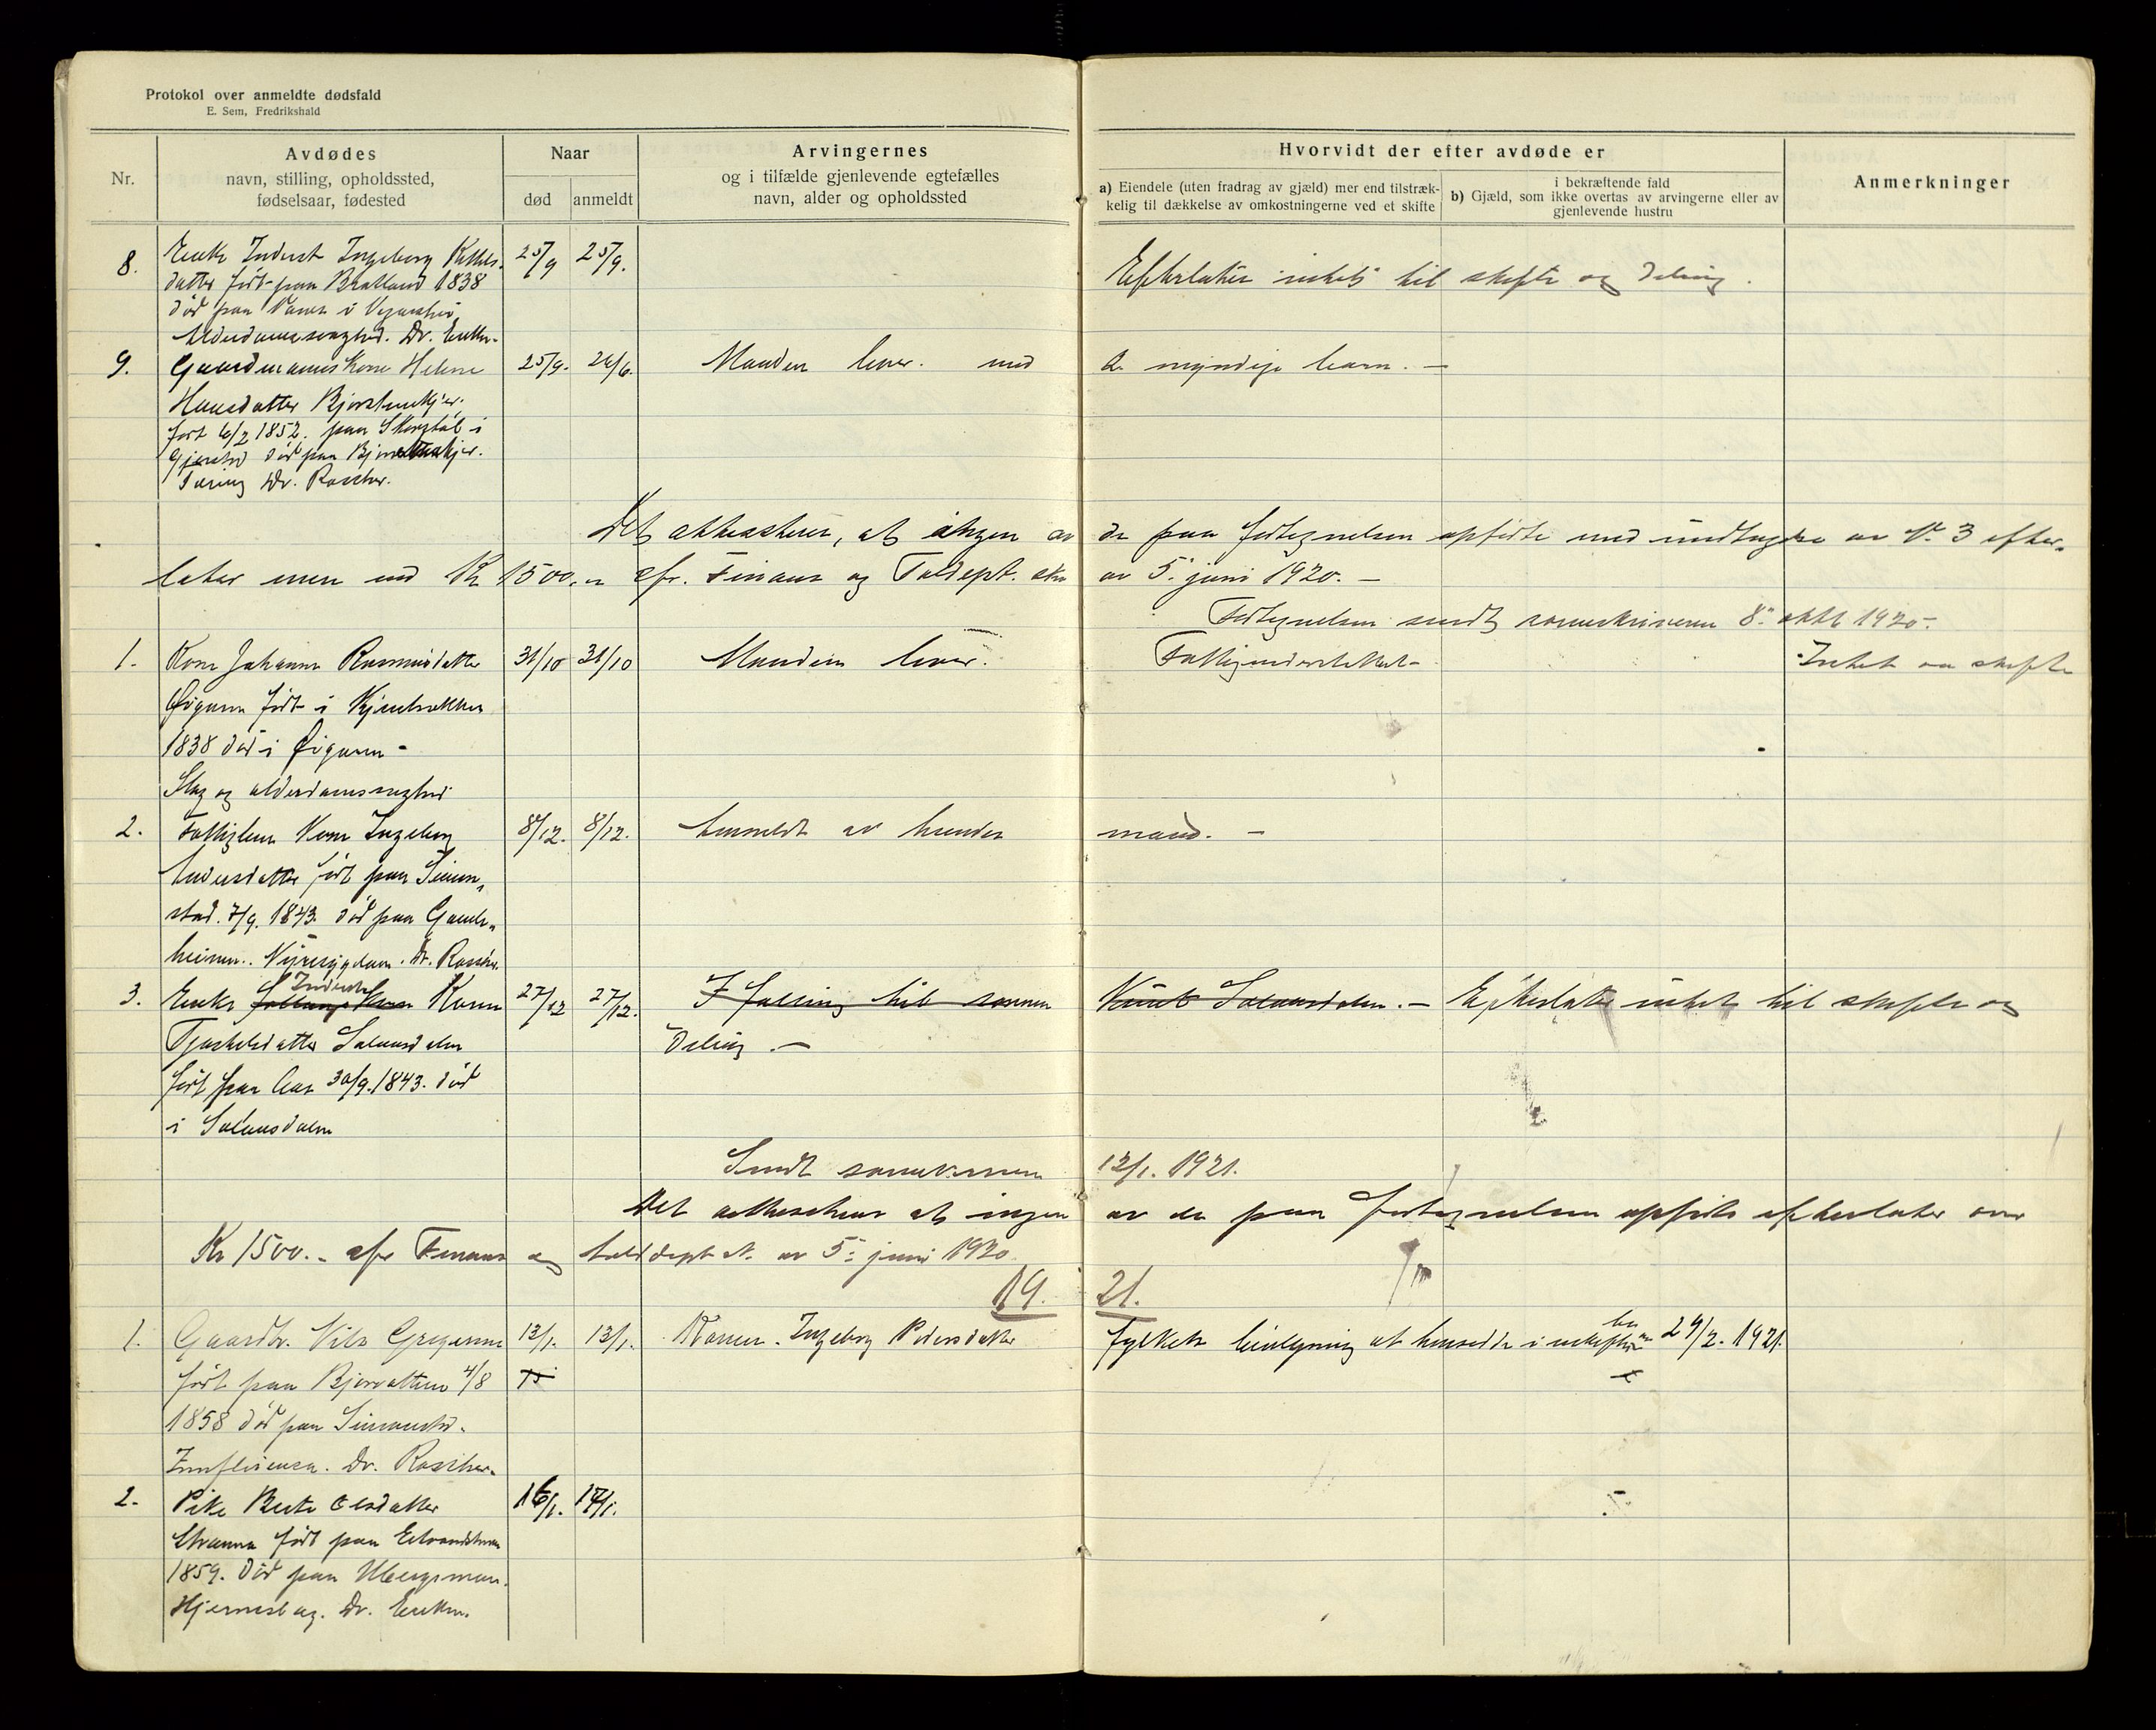 Protokol over anmeldte dødsfald
E. Sem, Fredrikshald
Nr.
Avdødes
navn, stilling, opholdssted,
fødselsaar, fødested
Naar
død
anmeldt
Arvingernes
og i tilfælde gjenlevende egtefælles
navn, alder og opholdssted
Hvorvidt der efter avdøde er
a) Eiendele (uten fradrag av gjæld) mer end tilstræk-
kelig til dækkelse av omkostningerne ved et skifte
i bekræftende fald
b) Gjæld, som ikke overtas av arvingerne eller av
gjenlevende hustru
Anmerkninger
8. Enke Inderst Ingeborg 25/9 25/9.
datter født paa Bratland 1838
død paa i Vegarshei
Alderdomssvaghed. Dr.
Efterlater intet til skifte og deling.
9. Gaardmannskone Helene 25/9. 26/6. Manden lever. med 2 myndige barn. –
Hansdatter
født 6/2 1852. paa i
Gjerstad død paa
Tæring Dr. Roscher.
Det attesteres, at ingen av de paa fortegnelsen opførte med undtagelse av Nr. 3 efter-
later mer end Kr 1500.- cfr. Finans og Tolddept. skr av 5. juni 1920. –
Fortegnelsen sendt sorenskriveren 8. oktb 1920.
1. Kone Johanne Rasmusdatter 31/10 31/10 Manden lever. Fattigunderstøttet – Intet aa skifte
Øigarn født i
1838 død i Øigarn –
Slag og alderdomssvaghed
2. Fattiglem Kone Ingeborg 8/12. 8/12. Anmeldt av hendes mand. –
Andersdatter født paa Simon-
stad. 7/9. 1843. død paa Gamle-
heimen. Nyresygdom. Dr. Roscher.
Inderst
3. Enke Karen 27/12 27/12. I følring til sønnen Knut Solemsdalen. – Efterlater intet til skifte og
Tjøstelsdatter Solemsdalen deling. –
født paa Aas 30/9. 1843. død
i Solemsdalen
Sendt 12/1. 1921.
Det attesteres at ingen av de paa fortegnelsen opførte efterlater over
Kr 1500.- cfr Finans og tolddept av 5. juni 1920
19. 21.
1. Gaardbr. Nils Gregersen 13/1. 13/1. Konen. Ingeborg Pedersdatter fylkets bevilgning at hensidde i uskiftet bo 24/2. 1921.
født paa 4/8
1858 død paa Simonstad.
Influensa. Dr. Roscher.
2. Pike Berte Olsdatter 16/1. 17/1.
født paa
1859. Død paa Ubergsmoen.
Hjerneslag. Dr.